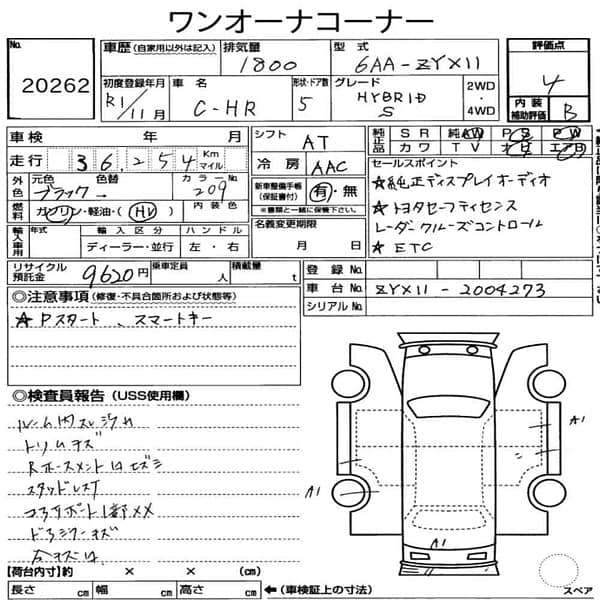 ワンオーナコーナー
No. 20262
車歴 (自家用以外は記入) 排気量 1800 型式 6AA-ZYX11 評価点 4
初度登録年月 R1/11月 車名 C-HR 形状・ドア数 5 グレード HYBRID S 2WD・4WD 内装補助評価 B
車検 年 月 シフト AT 純正品 SR 純AW PS PW
走行 36,254 Km マイル 冷房 AAC カワ TV ナビ エアB
外色 元色 ブラック 色替 カラーNo. 209 新車整備手帳(保証書付) 有・無 セールスポイント
※書類と一緒に保管下さい。 ☆純正ディスプレイオーディオ
燃料 ガソリン・軽油・(HV) 内装色 名義変更期限 月 日 ☆トヨタセーフティセンス
輸入車用 年式 輸入区分 ハンドル レーダークルーズコントロール
ディーラー・並行 左・右 ☆ETC
リサイクル預託金 9620円 乗車定員 人 積載量 t 登録No.
車台No. ZYX11-2004273
シリアルNo.
◎注意事項 (修復・不具合箇所および状態等)
☆Pスタート、スマートキー
◎検査員報告 (USS使用欄)
トリムキズ
A1
A1
A1
【荷台内寸】約 × × (cm)
長さ cm 幅 cm 高さ cm ←(車検証上の寸法)
スペア